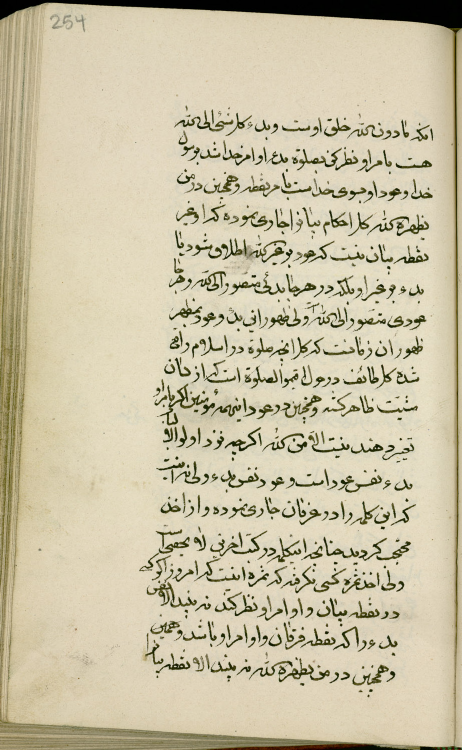 254
انکه مادون الله خلق اوست و بدء کل شئی الی الله
هست بامر او نظر کن بصلوة بدء او امر خدا شد برسول
خدا و عود او بسوی خداست بامر نقطه و همچنین در من
یظهره الله کل احکام بیان را جاری نموده که او غیر
نقطه بیان نیست که عود بر غیر الله اطلاق شود یا
بدء بر غیر او بلکه در هر جا بدئی متصور الی الله و هر جا
عودی متصور الی الله ولی ظهور این بدء و عود بمظهر
ظهور ان زمانست که کل انچه صلوة در اسلام واقع
شده کل طائف در حول اقیموا الصلوة است که از لسان
مشیت ظاهر گشته و همچنین در عود اینهمه مؤمنین اگر بامر او
تغییر دهند نیست الا من الله اگرچه نزد اولو الالباب
بدء نفس عود است و عود نفس بدء ولی نه اینست
که این کلمه را در عرفان جاری نموده و از اخذ
محتجب گردید چنانچه اینکلمه در کتب اخری لا یحصی است
ولی اخذ ثمره کسی نگرفته که ثمره اینست که امروز اگر کسی
در نقطه بیان و اوامر او نظر کند نه بیند الا نفس
بدء را که نقطه فرقان و اوامر او باشد و همچنین
و همچنین در من یظهره الله نه بیند الا نقطه بیان را